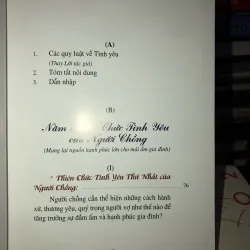 (A)
1. Các quy luật về Tình yêu
(Thay Lời tác giả)
2. Tóm tắt nội dung
3. Dẫn nhập
(B)
Năm Chức Tình Yêu
Người Chồng
(Mang lại nguồn hạnh phúc lớn cho mái ấm gia đình)
(I)
Thiên Chức Tình Yêu Thứ Nhất của
Người Chồng: 76
Người chồng cần thể hiện những cách hành
xử, thương yêu, quý trọng người vợ như thế nào để
tăng trưởng sự đầm ấm và hạnh phúc gia đình?